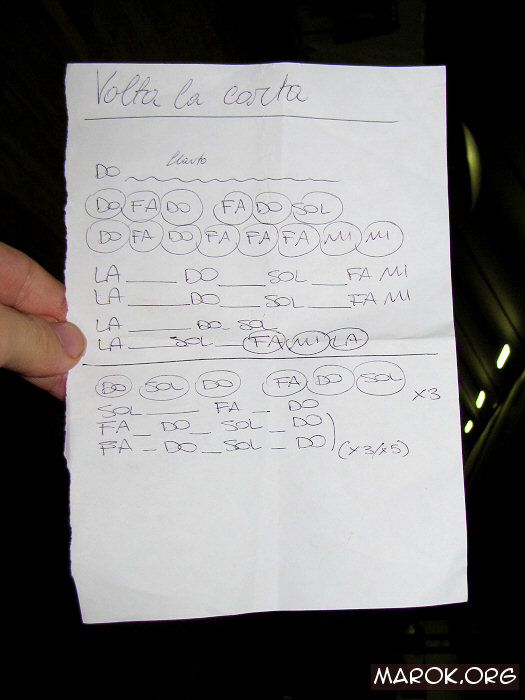 Volta la carta
DO flauto
DO FA DO FA DO SOL
DO FA DO FA FA FA MI MI
LA ____ DO ____ SOL ___ FA MI
LA ____ DO ___ SOL ___ FA MI
LA _____ DO _ SOL
LA ____ SOL _ FA MI LA
DO SOL DO FA DO SOL x3
SOL _____ FA _ DO
FA _ DO _ SOL _ DO
FA _ DO _ SOL _ DO (x3/x5)
MAROK.ORG